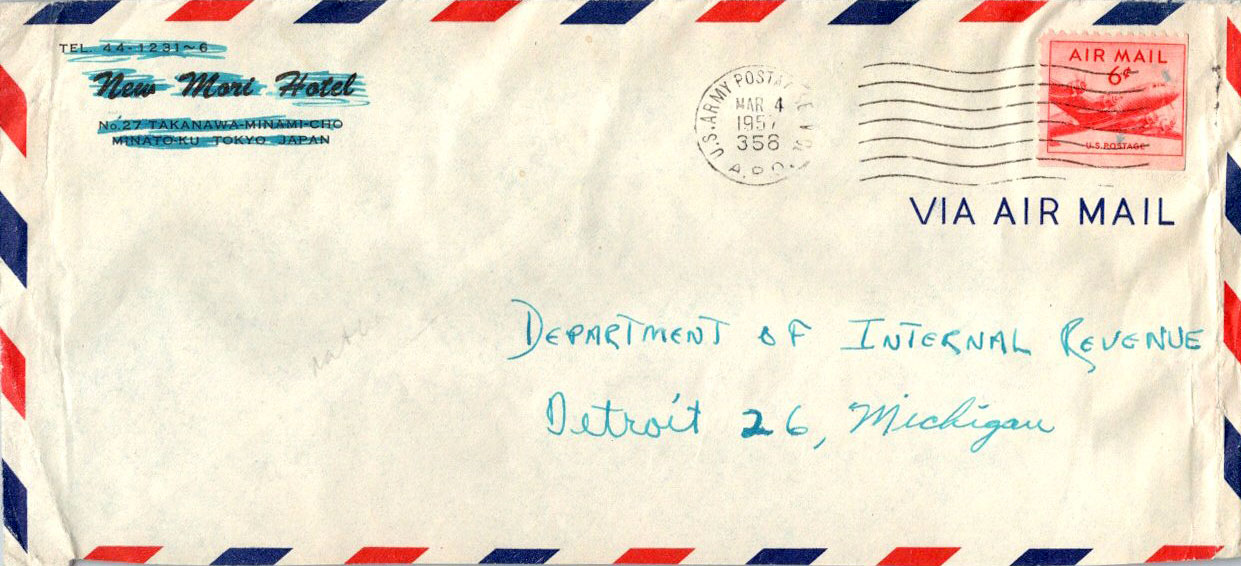 TEL. 44-1231~6
New Mori Hotel
No.27 TAKANAWA-MINAMI-CHO
MINATO-KU TOKYO JAPAN
U.S. ARMY POSTAL
MAR 4
1957
358
A.P.O.
AIR MAIL
6¢
U.S. POSTAGE
VIA AIR MAIL
DEPARTMENT OF INTERNAL REVENUE
Detroit 26, Michigan